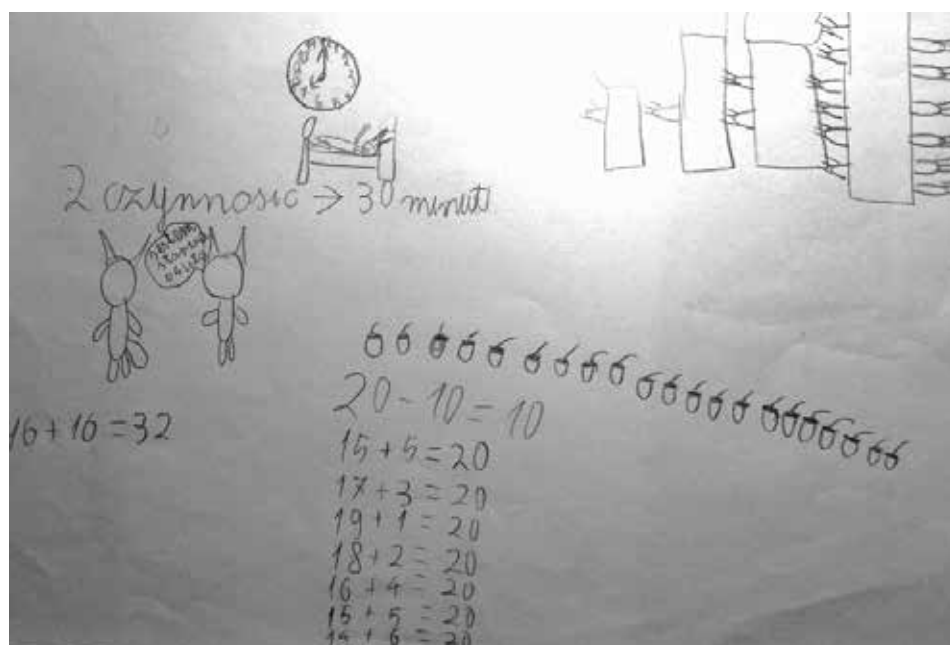 2 czynnosić → 30 minut
16 + 16 = 32
20 - 10 = 10
15 + 5 = 20
17 + 3 = 20
19 + 1 = 20
18 + 2 = 20
16 + 4 = 20
15 + 5 = 20
14 + 6 = 20